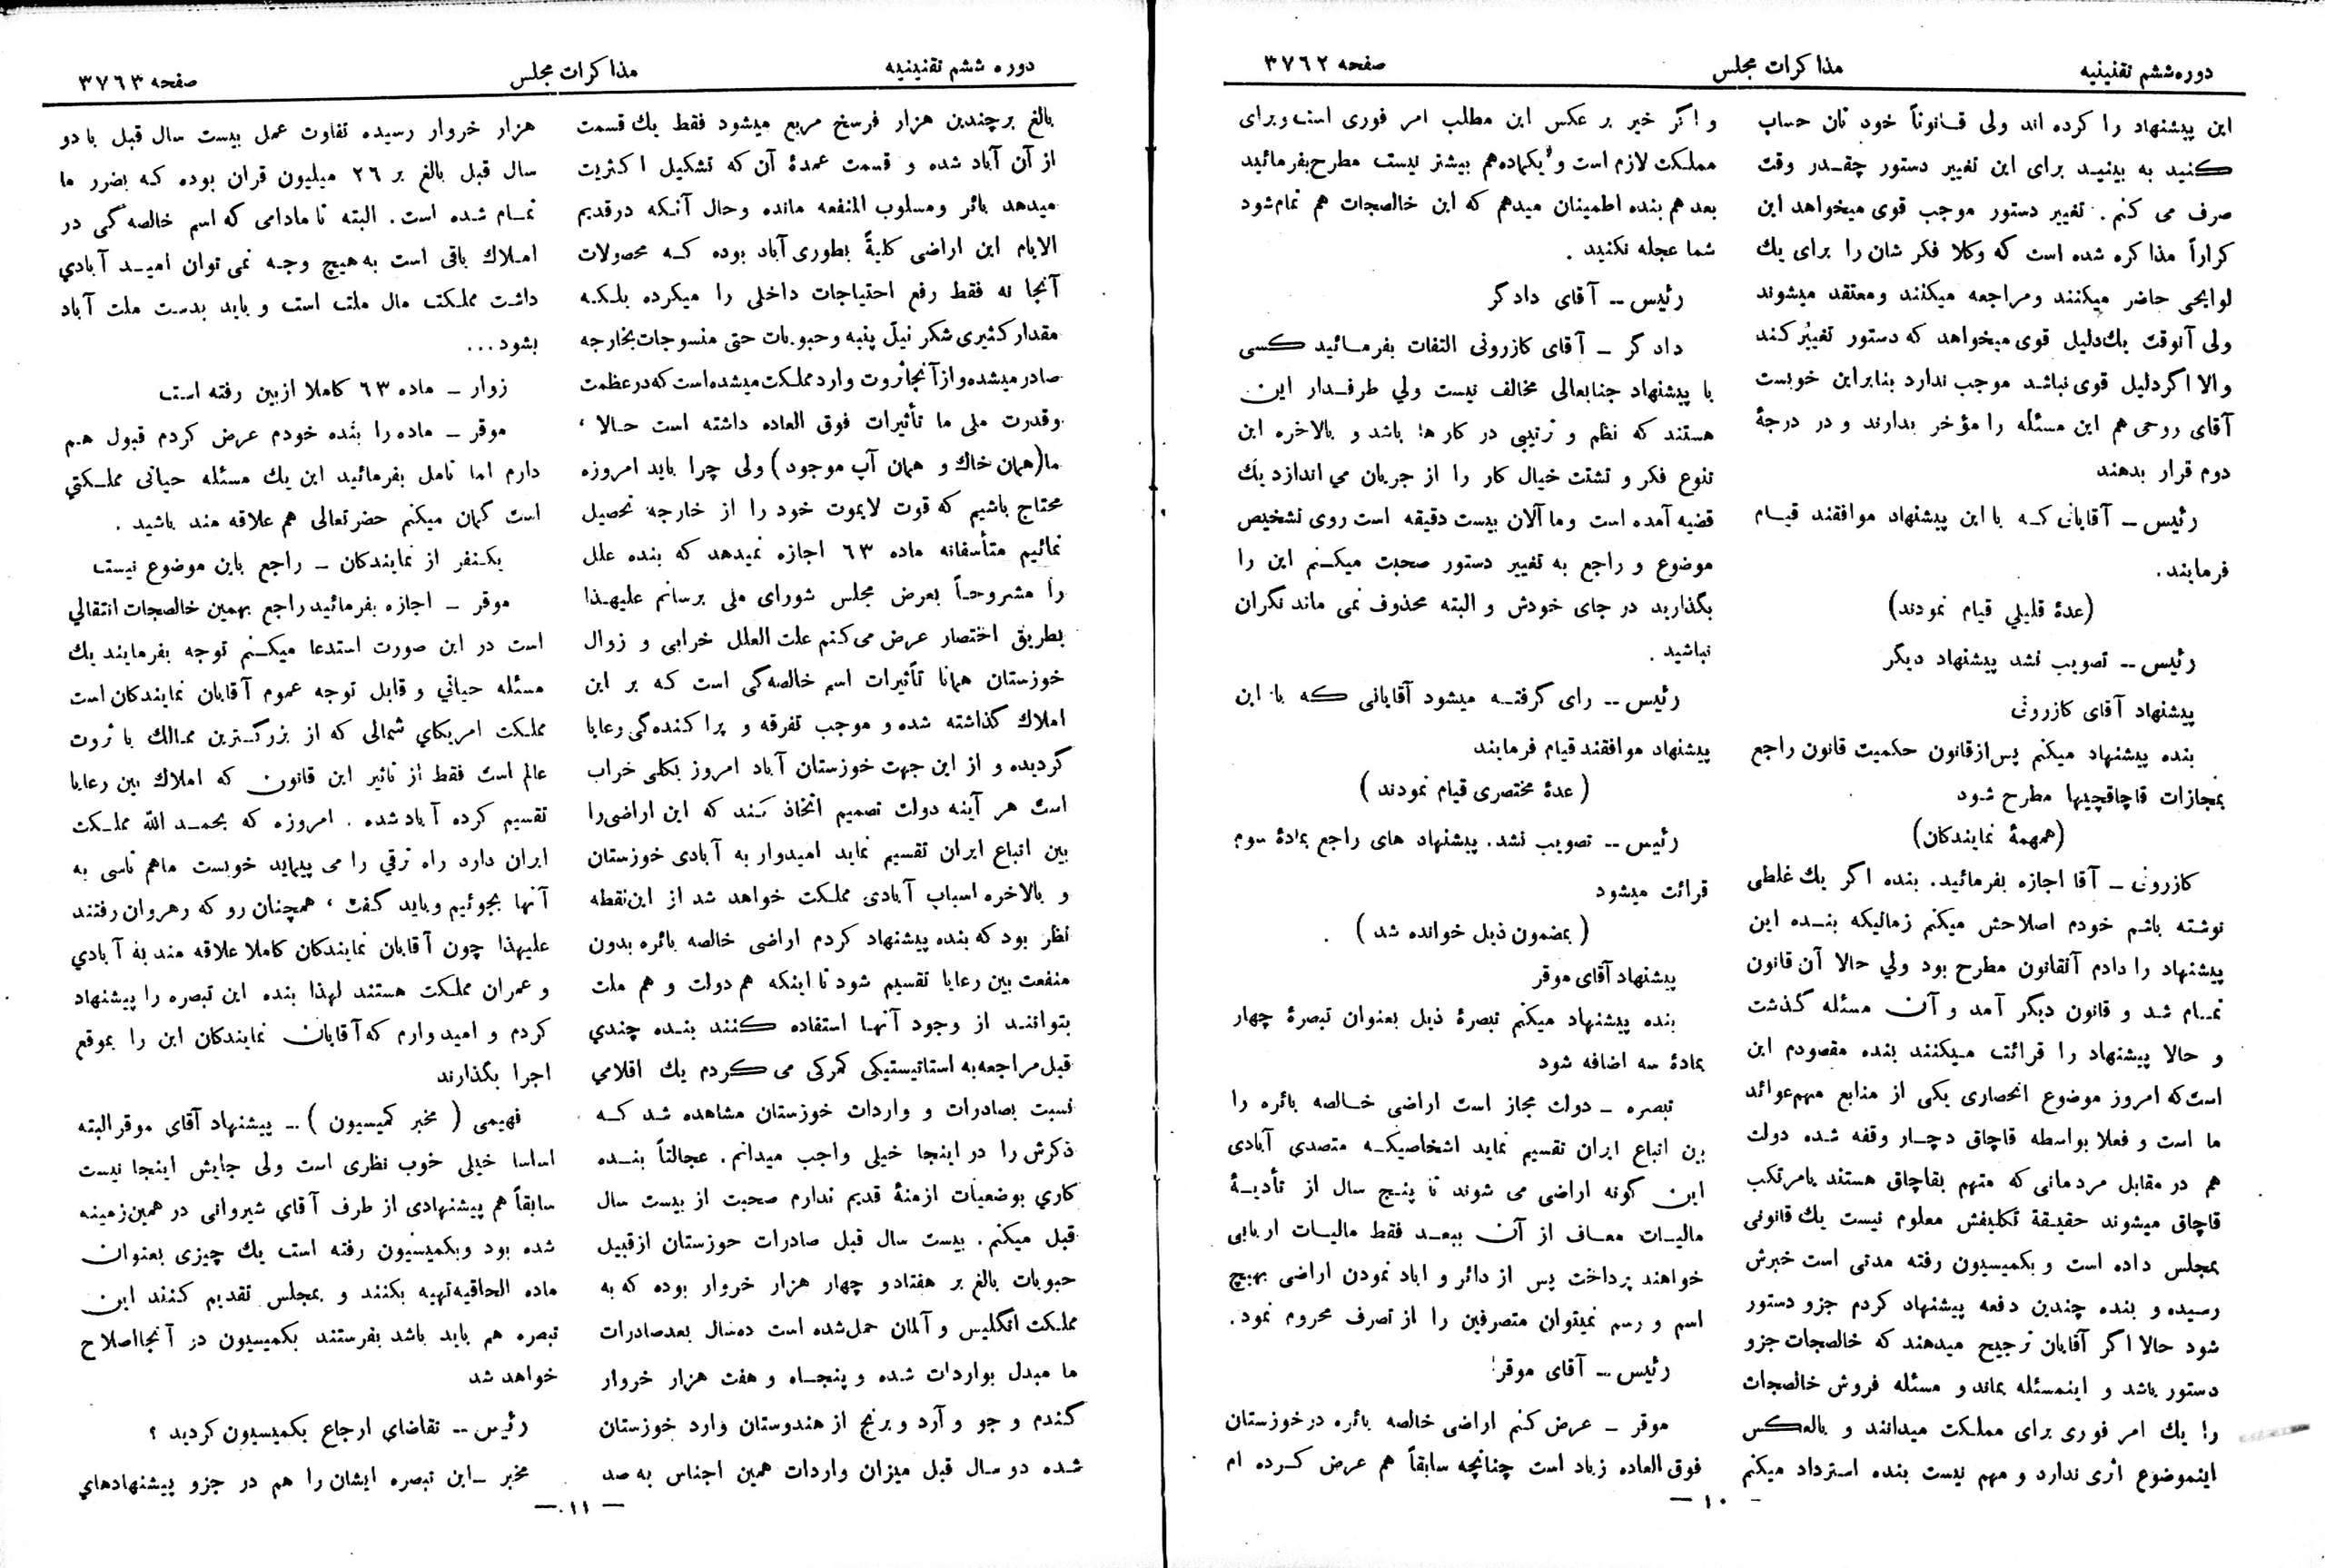 دوره ششم تقنینیه
مذاکرات مجلس
صفحه ۳۷٦۲
این پیشنهاد را کرده اند ولی قانوناً خود تان حساب
کنید به بینید برای این تغییر دستور چقدر وقت
صرف می کنم . تغییر دستور موجب قوی میخواهد این
کراراً مذاکره شده است که وکلا فکر شان را برای یك
لوایحی حاضر میکنند ومراجعه میکنند ومعتقد میشوند
ولی آنوقت یكدلیل قوی میخواهد که دستور تغییر کند
والا اگر دلیل قوی نباشد موجب ندارد بنابراین خوبست
آقای روحی هم این مسئله را مؤخر بدارند و در درجهٔ
دوم قرار بدهند
رئیس – آقایانی که با این پیشنهاد موافقند قیام
فرمایند .
(عدهٔ قلیلی قیام نمودند)
رئیس – تصویب نشد پیشنهاد دیگر
پیشنهاد آقای کازرونی
بنده پیشنهاد میکنم پس از قانون حکمیت قانون راجع
بمجازات قاچاقچیها مطرح شود
(همهمهٔ نمایندگان)
کازرونی – آقا اجازه بفرمائید . بنده اگر یك غلطی
نوشته باشم خودم اصلاحش میکنم زمانیکه بنده این
پیشنهاد را دادم آنقانون مطرح بود ولی حالا آن قانون
تمام شد و قانون دیگر آمد و آن مسئله گذشت
و حالا پیشنهاد را قرائت میکنند بنده مقصودم این
است که امروز موضوع انحصاری یکی از منابع مهم عوائد
ما است و فعلا بواسطه قاچاق دچار وقفه شده دولت
هم در مقابل مردمانی که متهم بقاچاق هستند یا مرتکب
قاچاق میشوند حقیقة تکلیفش معلوم نیست یك قانونی
بمجلس داده است و بکمیسیون رفته مدتی است خبرش
رسیده و بنده چندین دفعه پیشنهاد کردم جزو دستور
شود حالا اگر آقایان ترجیح میدهند که خالصجات جزو
دستور باشد و اینمسئله بماند و مسئله فروش خالصجات
را یك امر فوری برای مملکت میدانند و بالعکس
اینموضوع اثری ندارد و مهم نیست بنده استرداد میکنم
و اگر خیر بر عکس این مطلب امر فوری است و برای
مملکت لازم است و یکماده هم بیشتر نیست مطرح بفرمائید
بعد هم بنده اطمینان میدهم که این خالصجات هم تمام شود
شما عجله نکنید .
رئیس – آقای دادگر
دادگر – آقای کازرونی التفات بفرمائید کسی
با پیشنهاد جنابعالی مخالف نیست ولی طرفدار این
هستند که نظم و ترتیبی در کار ها باشد و بالاخره این
تنوع فکر و تشتت خیال کار را از جریان می اندازد یك
قضیه آمده است و ما الان بیست دقیقه است روی تشخیص
موضوع و راجع به تغییر دستور صحبت میکنم این را
بگذارید در جای خودش و البته محذوف نمی ماند نگران
نباشید .
رئیس – رای گرفته میشود آقایانی که با این
پیشنهاد موافقند قیام فرمایند
( عدهٔ مختصری قیام نمودند )
رئیس – تصویب نشد . پیشنهاد های راجع بمادهٔ سوم
قرائت میشود
( بمضمون ذیل خوانده شد ) .
پیشنهاد آقای موقر
بنده پیشنهاد میکنم تبصرهٔ ذیل بعنوان تبصرهٔ چهار
بمادهٔ سه اضافه شود
تبصره – دولت مجاز است اراضی خالصه بائره را
بین اتباع ایران تقسیم نماید اشخاصیکه متصدی آبادی
این گونه اراضی می شوند تا پنج سال از تأدیهٔ
مالیات معاف از آن ببعد فقط مالیات اربابی
خواهند پرداخت پس از دائر و اباد نمودن اراضی بهیچ
اسم و رسم نمیتوان متصرفین را از تصرف محروم نمود .
رئیس – آقای موقر
موقر – عرض کنم اراضی خالصه بائره در خوزستان
فوق العاده زیاد است چنانچه سابقاً هم عرض کرده ام
– ۱۰ –
دوره ششم تقنینیه
مذاکرات مجلس
صفحه ۳۷٦۳
بالغ بر چندین هزار فرسخ مربع میشود فقط یك قسمت
از آن آباد شده و قسمت عمدهٔ آن که تشکیل اکثریت
میدهد بائر ومسلوب المنفعه مانده وحال آنکه در قدیم
الایام این اراضی کلیةً بطوری آباد بوده که محصولات
آنجا نه فقط رفع احتیاجات داخلی را میکرده بلکه
مقدار کثیری شکر نیل پنبه و حبوبات حتی منسوجات بخارجه
صادر میشده و از آنجا ثروت وارد مملکت میشده است که در عظمت
وقدرت ملی ما تأثیرات فوق العاده داشته است حالا ،
ما(همان خاك و همان آب موجود) ولی چرا باید امروزه
محتاج باشیم که قوت لایموت خود را از خارجه تحصیل
نمائیم متأسفانه ماده ٦۳ اجازه نمیدهد که بنده علل
را مشروحاً بعرض مجلس شورای ملی برسانم علیهذا
بطریق اختصار عرض می کنم علت العلل خرابی و زوال
خوزستان همانا تأثیرات اسم خالصه گی است که بر این
املاك گذاشته شده و موجب تفرقه و پراکنده گی رعایا
گردیده و از این جهت خوزستان آباد امروز بکلی خراب
است هر آینه دولت تصمیم اتخاذ کند که این اراضی را
بین اتباع ایران تقسیم نماید امیدوار به آبادی خوزستان
و بالاخره اسباب آبادی مملکت خواهد شد از این نقطه
نظر بود که بنده پیشنهاد کردم اراضی خالصه بائره بدون
منفعت بین رعایا تقسیم شود تا اینکه هم دولت و هم ملت
بتوانند از وجود آنها استفاده کنند بنده چندی
قبل مراجعه به استاتیستیکی گمرکی می کردم یك اقلامی
نسبت بصادرات و واردات خوزستان مشاهده شد که
ذکرش را در اینجا خیلی واجب میدانم . عجالتاً بنده
کاری بوضعیات ازمنهٔ قدیم ندارم صحبت از بیست سال
قبل میکنم . بیست سال قبل صادرات خوزستان از قبیل
حبوبات بالغ بر هفتاد و چهار هزار خروار بوده که به
مملکت انگلیس و آلمان حمل شده است ده سال بعد صادرات
ما مبدل بواردات شده و پنجاه و هفت هزار خروار
گندم و جو و آرد و برنج از هندوستان وارد خوزستان
شده دو سال قبل میزان واردات همین اجناس به صد
هزار خروار رسیده تفاوت عمل بیست سال قبل با دو
سال قبل بالغ بر ۲٦ میلیون قران بوده که بضرر ما
تمام شده است . البته تا مادامی که اسم خالصه گی در
املاك باقی است به هیچ وجه نمی توان امید آبادی
داشت مملکت مال ملت است و باید بدست ملت آباد
بشود ...
زوار – ماده ٦۳ کاملا از بین رفته است
موقر – ماده را بنده خودم عرض کردم قبول هم
دارم اما تامل بفرمائید این یك مسئله حیاتی مملکتی
است گمان میکنم حضرتعالی هم علاقه مند باشید .
یکنفر از نمایندگان – راجع باین موضوع نیست
موقر – اجازه بفرمائید راجع بهمین خالصجات انتقالی
است در این صورت استدعا میکنم توجه بفرمایند یك
مسئله حیاتی و قابل توجه عموم آقایان نمایندگان است
مملکت امریکای شمالی که از بزرگترین ممالك با ثروت
عالم است فقط از تاثیر این قانون که املاك بین رعایا
تقسیم کرده آباد شده . امروزه که بحمد الله مملکت
ایران دارد راه ترقی را می پیماید خوبست ماهم تاسی به
آنها بجوئیم و باید گفت ، همچنان رو که رهروان رفتند
علیهذا چون آقایان نمایندگان کاملا علاقه مند به آبادی
و عمران مملکت هستند لهذا بنده این تبصره را پیشنهاد
کردم و امید وارم که آقایان نمایندگان این را بموقع
اجرا بگذارند
فهیمی ( مخبر کمیسیون ) – پیشنهاد آقای موقر البته
اساسا خیلی خوب نظری است ولی جایش اینجا نیست
سابقاً هم پیشنهادی از طرف آقای شیروانی در همین زمینه
شده بود و بکمیسیون رفته است یك چیزی بعنوان
ماده الحاقیه تهیه بکنند و بمجلس تقدیم کنند این
تبصره هم باید باشد بفرستند بکمیسیون در آنجا اصلاح
خواهد شد
رئیس – تقاضای ارجاع بکمیسیون کردید ؟
مخبر – این تبصره ایشان را هم در جزو پیشنهادهای
– ۱۱ –